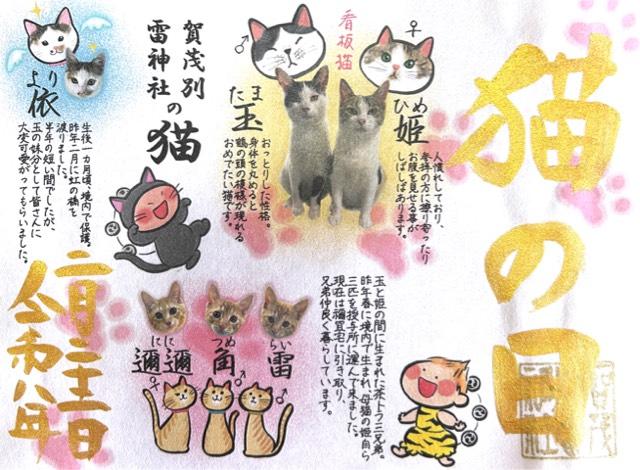 猫の日
看板猫
♂
♀
ひめ
姫
人慣れしており、
参拝の方に擦り寄ったり
お腹を見せる事が
しばしばあります。
たま
玉
おっとりした性格。
身体を丸めると
鶴の頭の模様が現れる
おめでたい猫です。
賀茂別
雷神社
の猫
より
依
生後一カ月頃、境内で保護。
昨年二月に虹の橋を
渡りました。
半年の短い間でしたが、
玉の妹分として皆さんに
大変可愛がってもらいました。
玉と姫の間に生まれた茶トラ三兄弟。
昨年春に境内で生まれ、母猫の姫自ら
三匹を授与所に運んで来ました。
現在は禰宜宅に引き取り、
兄弟仲良く暮らしています。
らい
雷
♂
つめ
角
♂
にに
邇邇
♀
二月二十二日
令和八年